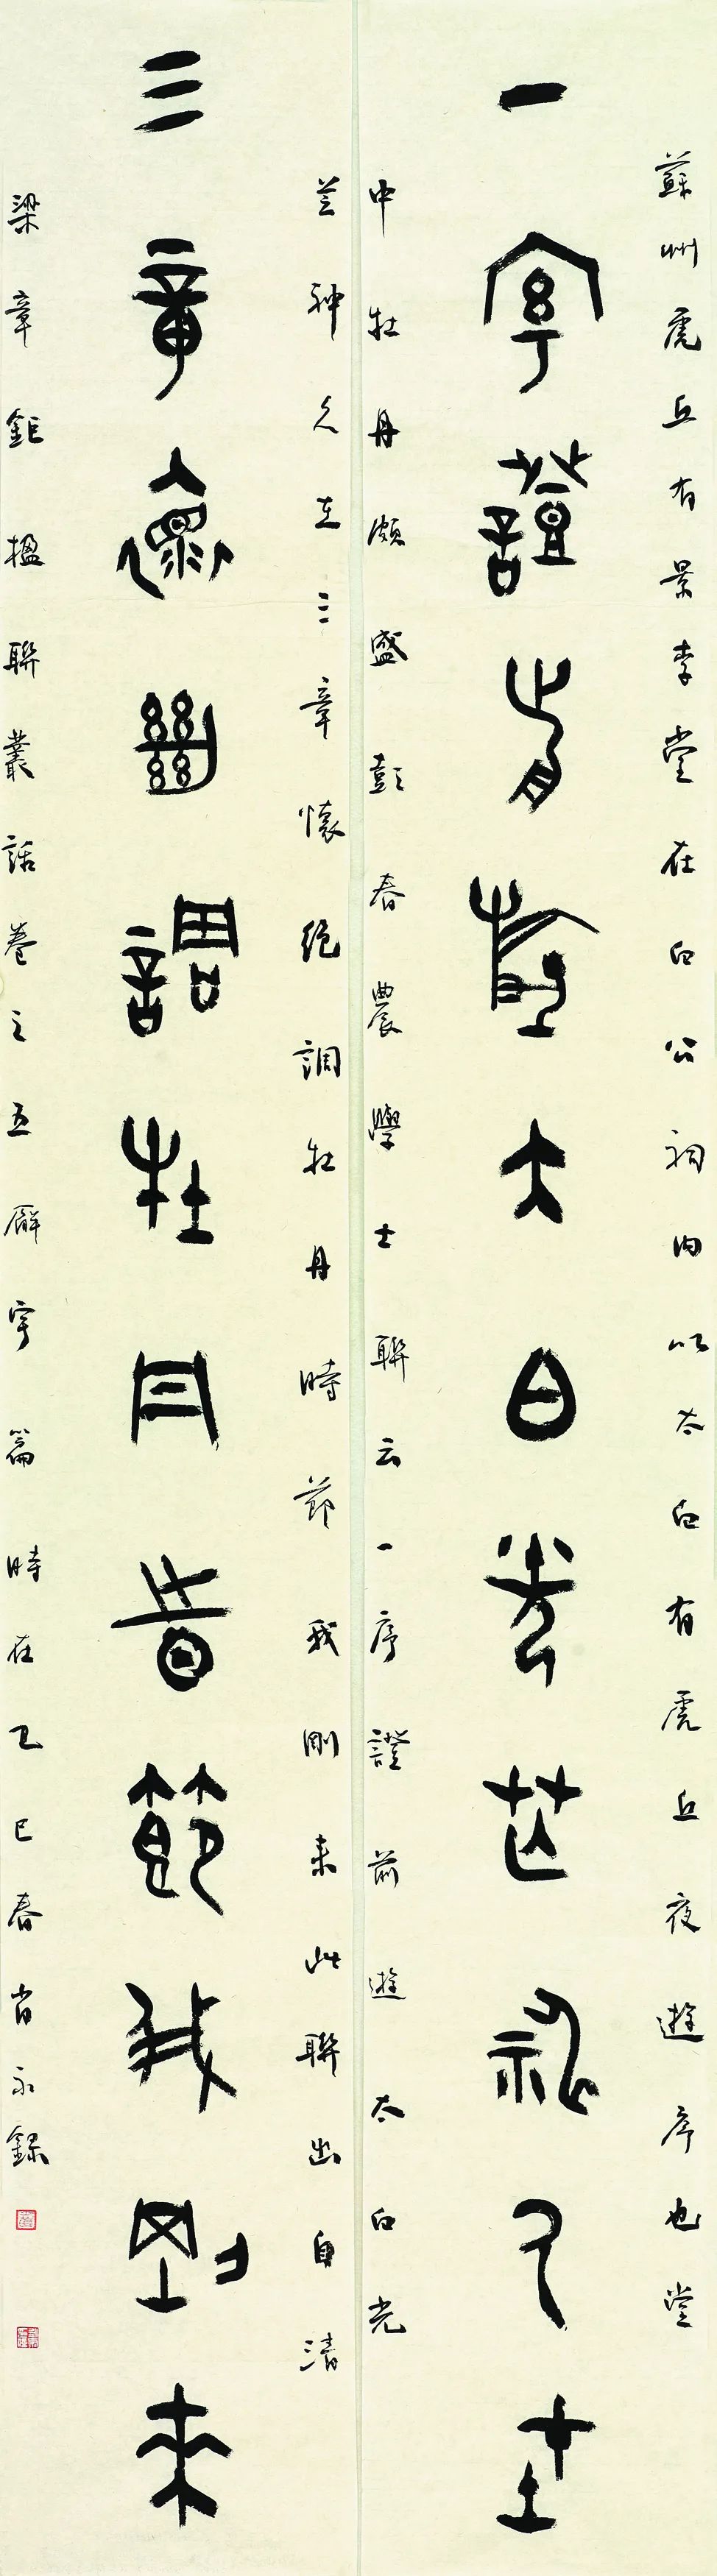 蘇州虎丘有景李堂在白公祠內以太白有虎丘夜遊序也堂
一序證前遊太白光芒神久在
中牡丹頗盛彭春農學士聯云一序證前遊太白光
芒神久在三章懷絕調牡丹時節我剛來此聯出自清
三章懷絕調牡丹時節我剛來
梁章鉅楹聯叢話卷之五廨宇篇時在乙巳春永錄